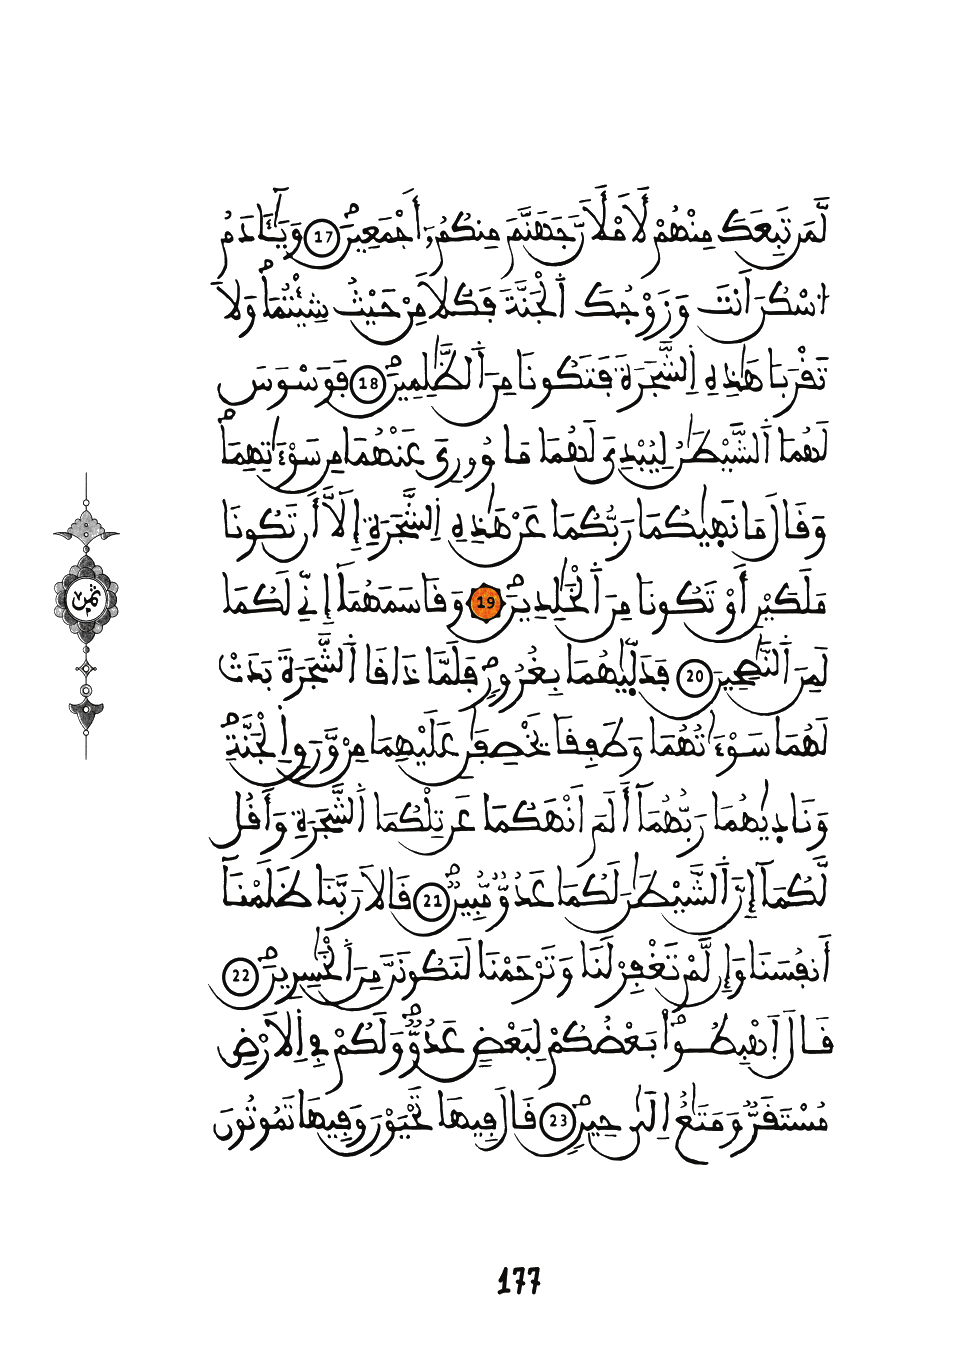 لَّمَن تَبِعَكَ مِنْهُمْ لَأَمْلَأَنَّ جَهَنَّمَ مِنكُمُۥٓ أَجْمَعِينَ 17 وَيَٰٓـَٔادَمُ
ٱسْكُنَ أَنتَ وَزَوْجُكَ ٱلْجَنَّةَ فَكُلَا مِنْ حَيْثُ شِئْتُمَا وَلَا
تَقْرَبَا هَٰذِهِ ٱلشَّجَرَةَ فَتَكُونَا مِنَ ٱلظَّٰلِمِينَ 18 فَوَسْوَسَ
لَهُمَا ٱلشَّيْطَٰنُ لِيُبْدِيَ لَهُمَا مَا وُۥرِيَ عَنْهُمَا مِن سَوْءَٰتِهِمَا
وَقَالَ مَا نَهَىٰكُمَا رَبُّكُمَا عَنْ هَٰذِهِ ٱلشَّجَرَةِ إِلَّآ أَن تَكُونَا
مَلَكَيْنِ أَوْ تَكُونَا مِنَ ٱلْخَٰلِدِينَ 19 وَقَاسَمَهُمَآ إِنِّي لَكُمَا
لَمِنَ ٱلنَّٰصِحِينَ 20 فَدَلَّىٰهُمَا بِغُرُورٍ فَلَمَّا ذَاقَا ٱلشَّجَرَةَ بَدَتْ
لَهُمَا سَوْءَٰتُهُمَا وَطَفِقَا يَخْصِفَٰنِ عَلَيْهِمَا مِنْ وَّرَقِ ٱلْجَنَّةِ
وَنَادَىٰهُمَا رَبُّهُمَآ أَلَمَ أَنْهَكُمَا عَن تِلْكُمَا ٱلشَّجَرَةِ وَأَقُل
لَّكُمَآ إِنَّ ٱلشَّيْطَٰنَ لَكُمَا عَدُوٌّ مُّبِينٌ 21 قَالَا رَبَّنَا ظَلَمْنَآ
أَنفُسَنَا وَإِن لَّمْ تَغْفِرْ لَنَا وَتَرْحَمْنَا لَنَكُونَنَّ مِنَ ٱلْخَٰسِرِينَ 22
قَالَ ٱهْبِطُوا۟ بَعْضُكُمْ لِبَعْضٍ عَدُوٌّ وَلَكُمْ فِي ٱلْأَرْضِ
مُسْتَقَرٌّ وَمَتَٰعٌ إِلَىٰ حِينٍ 23 قَالَ فِيهَا تَحْيَوْنَ وَفِيهَا تَمُوتُونَ
ثمن
177